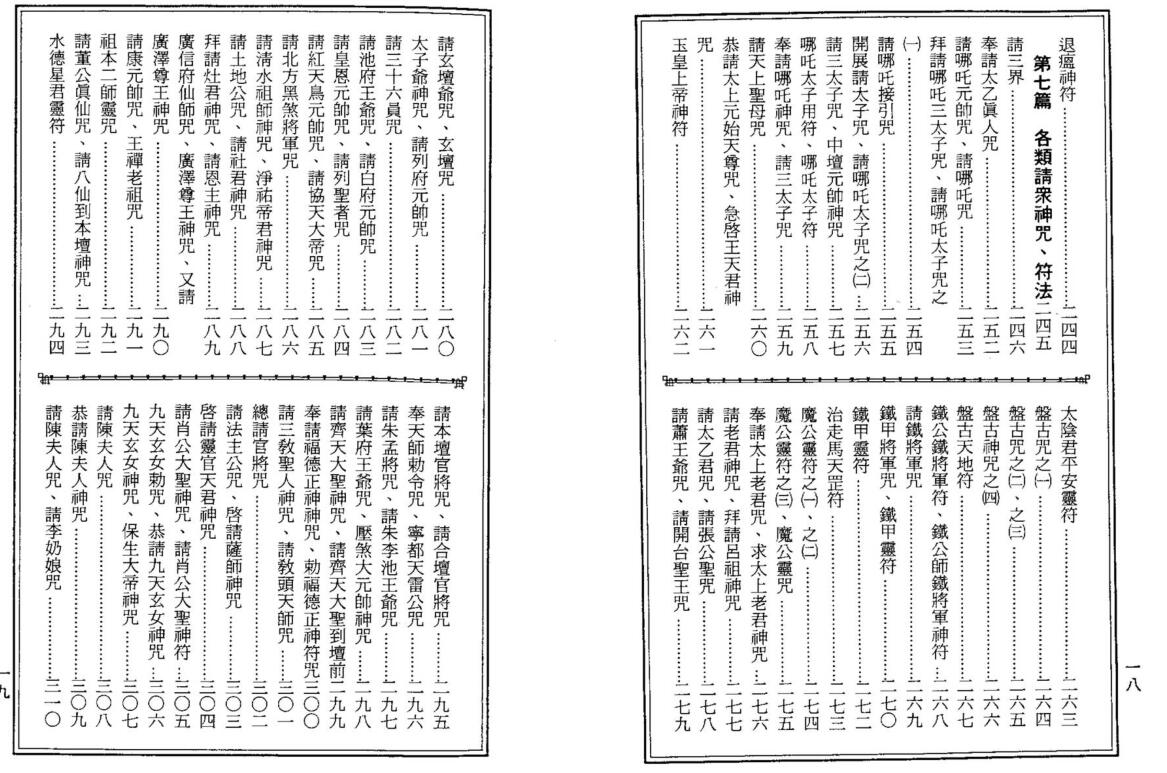 退瘟神符……二四四
第七篇　各類請衆神咒、符法二四五
請三界……二四六
奉請太乙眞人咒……二五二
請哪吒元帥咒、請哪吒咒……二五三
拜請哪吒三太子咒、請哪吒太子咒之
㈠……二五四
請哪吒接引咒……二五五
開展請太子咒、請哪吒太子咒之㈡…二五六
請三太子咒、中壇元帥神咒……二五七
哪吒太子用符、哪吒太子符……二五八
奉請哪吒神咒、請三太子咒……二五九
請天上聖母咒……二六〇
恭請太上元始天尊咒、急啓王天君神
咒……二六一
玉皇上帝神符……二六二
太陰君平安靈符……二六三
盤古咒之㈠……二六四
盤古咒之㈡、之㈢……二六五
盤古神咒之㈣……二六六
盤古天地符……二六七
鐵公鐵將軍符、鐵公師鐵將軍神符…二六八
請鐵將軍咒……二六九
鐵甲將軍咒、鐵甲靈符……二七〇
鐵甲靈符……二七二
治走馬天罡符……二七三
魔公靈符之㈠、之㈡……二七四
魔公靈符之㈢、魔公靈咒……二七五
奉請太上老君咒、求太上老君神咒…二七六
請老君神咒、拜請呂祖神咒……二七七
請太乙君咒、請張公聖咒……二七八
請蕭王爺咒、請開台聖王咒……二七九
一八
請玄壇爺咒、玄壇咒……二八〇
太子爺神咒、請列府元帥咒……二八一
請三十六員咒……二八二
請池府王爺咒、請白府元帥咒……二八三
請皇恩元帥咒、請列聖者咒……二八四
請紅天鳥元帥咒、請協天大帝咒……二八五
請北方黑煞將軍咒……二八六
請淸水祖師神咒、淨祐帝君神咒……二八七
請土地公咒、請社君神咒……二八八
拜請灶君神咒、請恩主神咒……二八九
廣信府仙師咒、廣澤尊王神咒、又請
廣澤尊王神咒……二九〇
請康元帥咒、王禪老祖咒……二九一
祖本二師靈咒……二九二
請董公眞仙咒、請八仙到本壇神咒…二九三
水德星君靈符……二九四
請本壇官將咒、請合壇官將咒……二九五
奉天師勅令咒、寧都天雷公咒……二九六
請朱孟將咒、請朱李池王爺咒……二九七
請葉府王爺咒、壓煞大元帥神咒……二九八
請齊天大聖神咒、請齊天大聖到壇前二九九
奉請福德正神神咒、勅福德正神符咒三〇〇
請三敎聖人神咒、請敎頭天師咒……三〇一
總請官將咒……三〇二
請法主公咒、啓請薩師神咒……三〇三
啓請靈官天君神咒……三〇四
請肖公大聖神咒、請肖公大聖神符…三〇五
九天玄女勅咒、恭請九天玄女神咒…三〇六
九天玄女神咒、保生大帝神咒……三〇七
請陳夫人咒……三〇八
恭請陳夫人神咒……三〇九
請陳夫人咒、請李奶娘咒……三一〇
一九